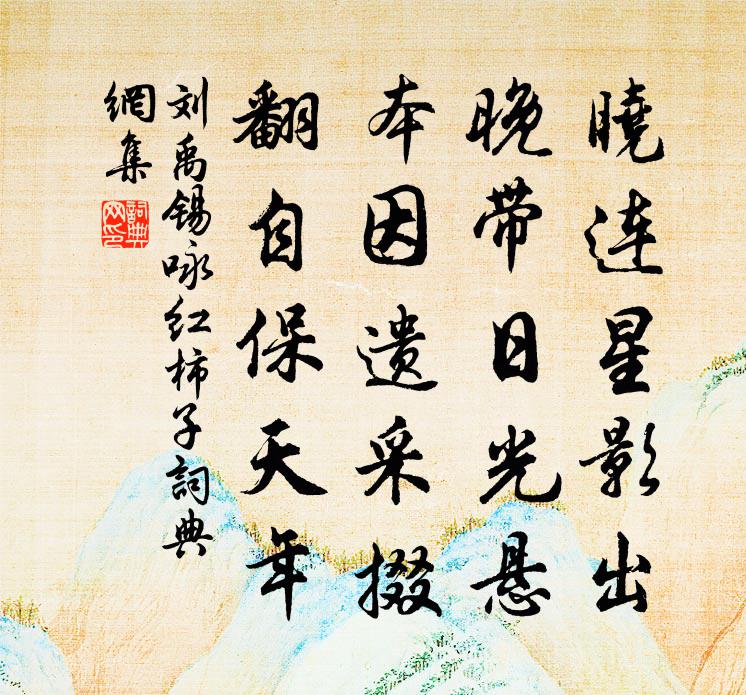 曉连星影出
晚带日光悬
本因遗采掇
翻自保天年
刘禹锡咏红柿子詞典
網集
詞典
网印